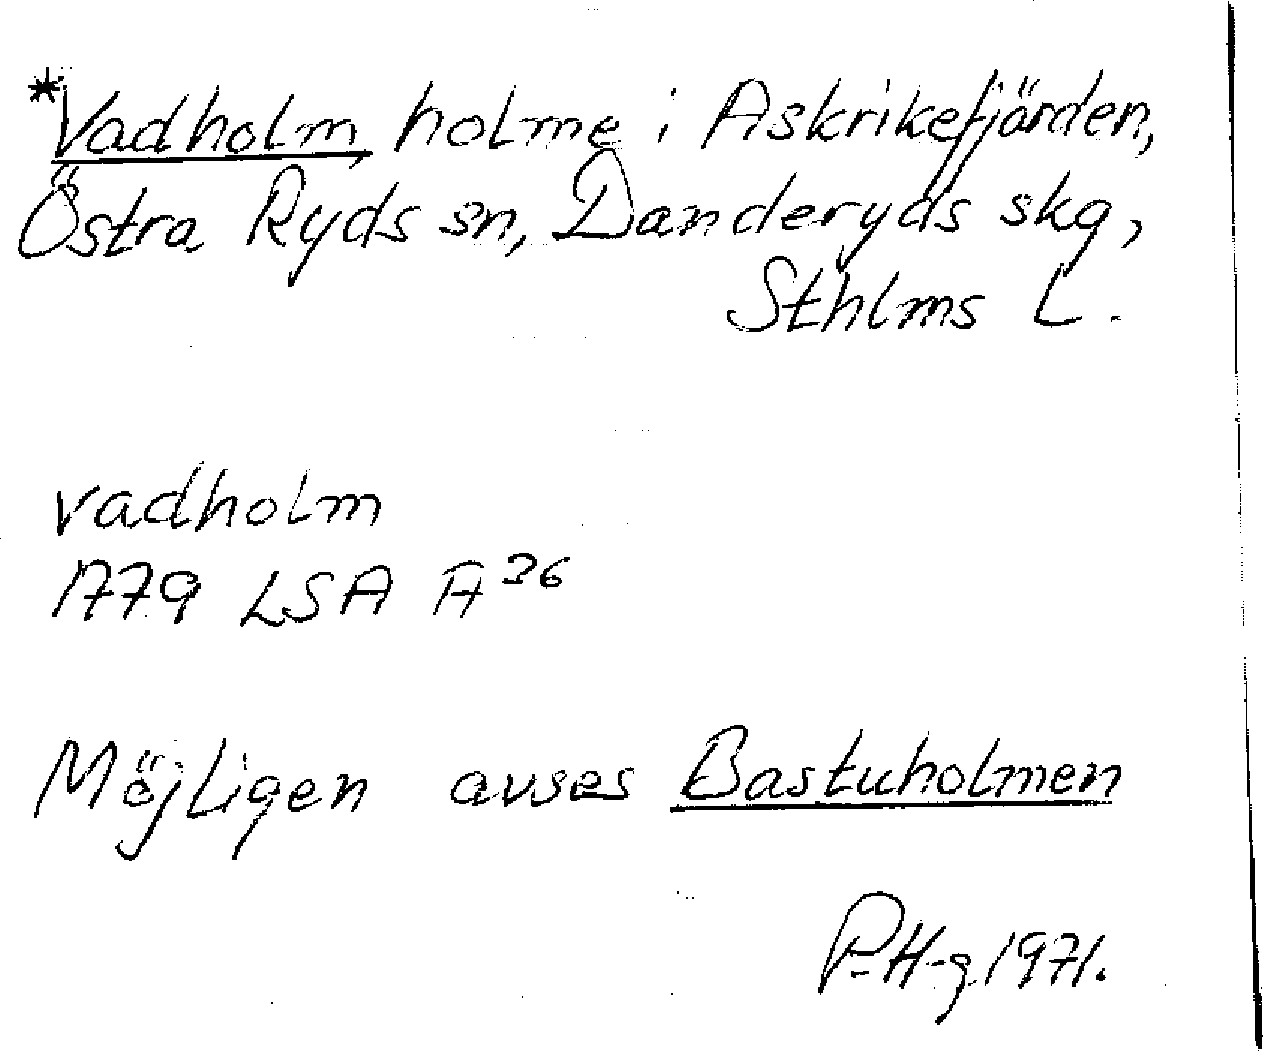 *Vadholm, holme i Askrikefjärden,
Östra Ryds sn, Danderyds skg,
Sthlms L.
vadholm
1779 LSA A³⁶
Möjligen avses Bastuholmen
P. H-g 1971.